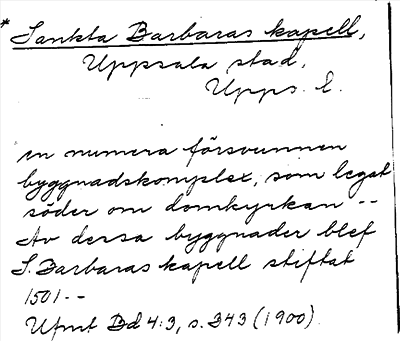 * Sankta Barbaras kapell,
Uppsala stad,
Upps. l.
en numera försvunnen
byggnadskomplex, som legat
söder om domkyrkan --
Av dessa byggnader blef
S. Barbaras kapell stiftat
1501 --
Ufmt Bd 4:3, s. 343 (1900).